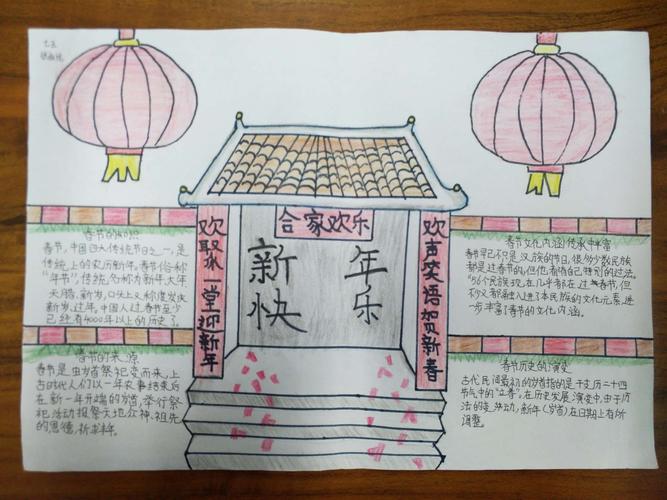 七五
合家欢乐
新年
快乐
欢聚一堂迎新年
欢声笑语贺新春
春节的知识
春节,中国四大传统节日之一,是
传统上的农历新年。春节俗称
“年节”,传统名称为新年、大年
天腊、新岁,口头上又称度岁庆
新岁、过年,中国人过春节至少
已经有4000年以上的历史了。
春节的来源
春节是由岁首祭祀变而来,上
古时代人们以一年农事结束后
在新一年开端的岁首,举行祭
祀活动报祭天地众神、祖先
的恩德,祈丰年。
春节文化内涵传承中丰富
春节早已不只是汉族的节日,很多少数民族
都是过春节的,但他有陷己特别的过法。
56个民族现在几乎都在过春节,但
又都融入进了本民族的文化元素,进
一步丰富了春节的文化内涵。
春节历史的演变
古代民间最初的岁首指的是干支历二十四
节气中的“立春”。在历史发展演变中,由于历
法的变动,新年(岁首)在日期上有所
调整。